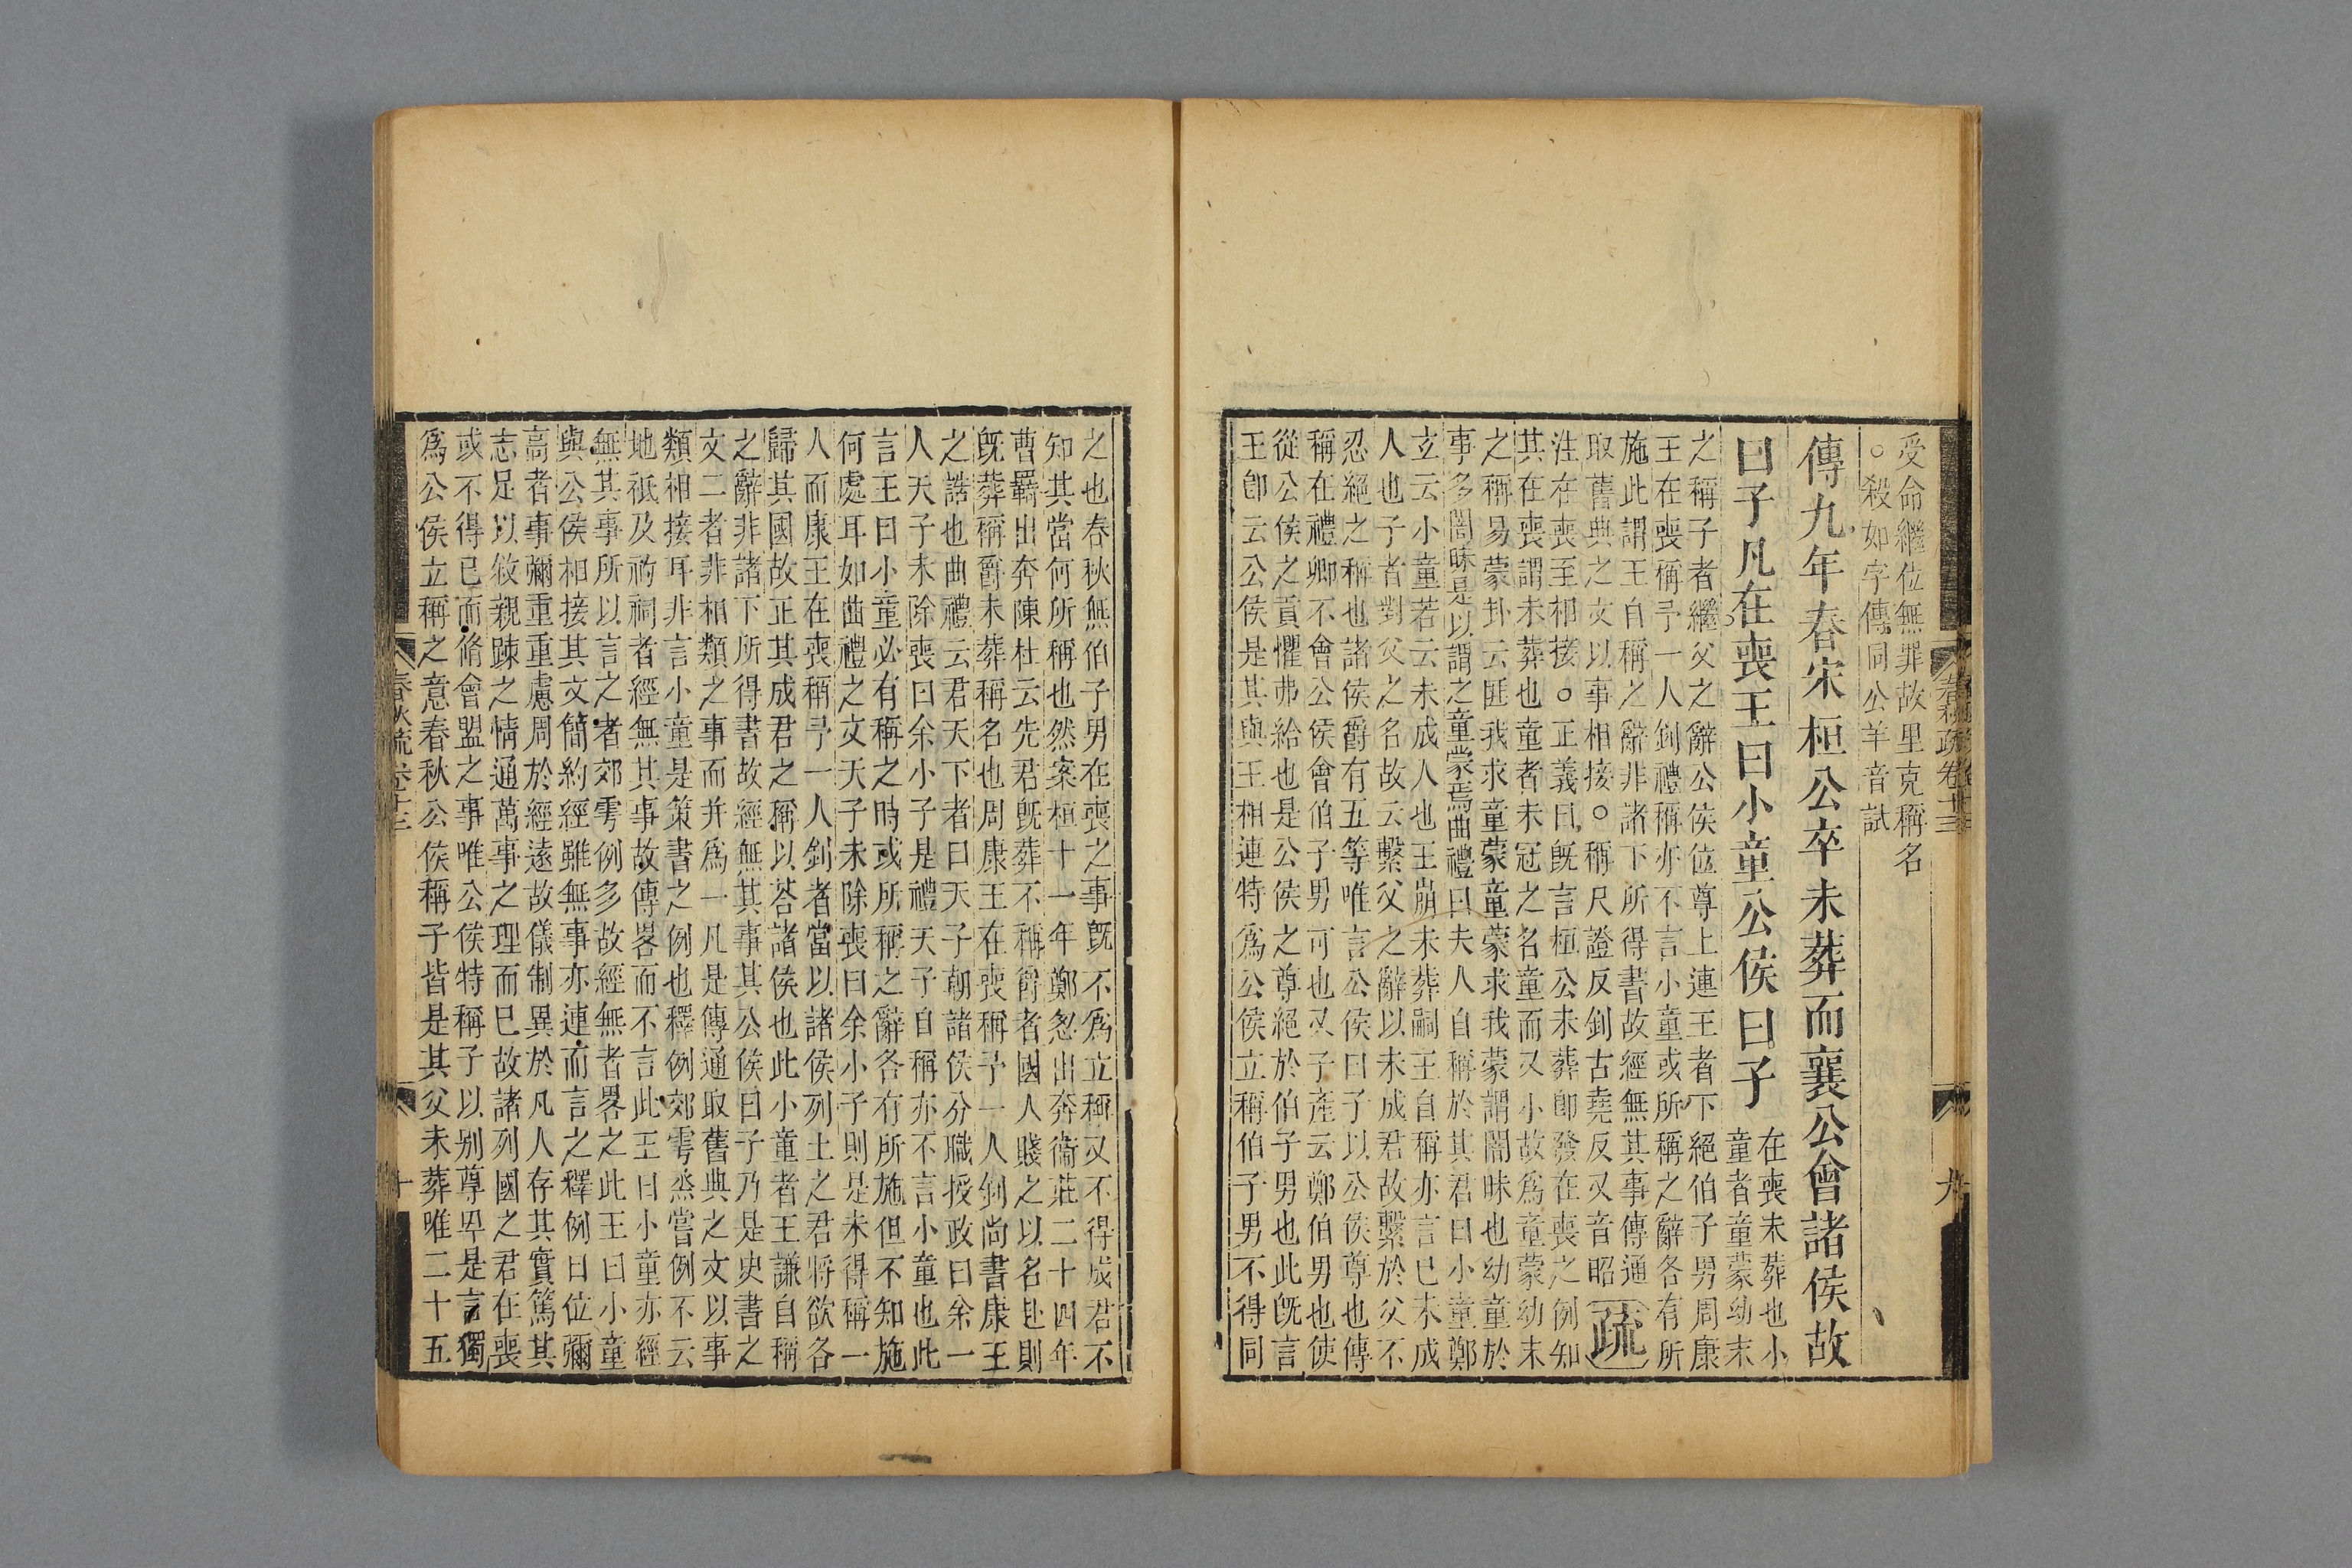 受命繼位無罪故里克稱名
○殺如字傳同公羊音試
傳九年春宋桓公卒未葬而襄公會諸侯故
曰子凡在喪王曰小童公侯曰子
在喪未葬也小
童者童蒙幼末
之稱子者繼父之辭公侯位尊上連王者下絕伯子男周康
王在喪稱予一人釗禮稱亦不言小童或所稱之辭各有所
施此謂王自稱之辭非諸下所得書故經無其事傳通
取舊典之文以事相接○稱尺證反釗古堯反又音昭
疏
注在喪至相接○正義曰旣言桓公未葬卽發在喪之例知
其在喪謂未葬也童者未冠之名童而又小故爲童蒙幼末
之稱易蒙卦云匪我求童蒙童蒙求我蒙謂闇昧也幼童於
事多闇昧是以謂之童蒙焉曲禮曰夫人自稱於其君曰小童鄭
玄云小童若云未成人也王崩未葬嗣王自稱亦言已未成
人也子者對父之名故云繫父之辭以未成君故繫於父不
忍絕之稱也諸侯爵有五等唯言公侯曰子以公侯尊也傳
稱在禮卿不會公侯會伯子男可也又子產云鄭伯男也使
從公侯之貢懼弗給也是公侯之尊絕於伯子男也此旣言
王卽云公侯是其與王相連特爲公侯立稱伯子男不得同
春秋疏卷十三
九
之也春秋無伯子男在喪之事旣不爲立稱又不得成君不
知其當何所稱也然案桓十一年鄭忽出奔衞莊二十四年
曹羈出奔陳杜云先君旣葬不稱爵者國人賤之以名赴則
旣葬稱爵未葬稱名也周康王在喪稱予一人釗尚書康王
之誥也曲禮云君天下者曰天子朝諸侯分職授政曰余一
人天子未除喪曰余小子是禮天子自稱亦不言小童也此
言王曰小童必有稱之時或所稱之辭各有所施但不知施
何處耳如曲禮之文天子未除喪曰余小子則是未得稱一
人而康王在喪稱予一人釗者當以諸侯列土之君將欲各
歸其國故正其成君之稱以荅諸侯也此小童者王謙自稱
之辭非諸下所得書故經無其事其公侯曰子乃是史書之
文二者非相類之事而并爲一凡是傳通取舊典之文以事
類相接耳非言小童是策書之例也釋例郊雩烝嘗例不云
地祇及礿祠者經無其事故傳畧而不言此王曰小童亦經
無其事所以言之者郊雩例多故經無者畧之此王曰小童
與公侯相接其文簡約經雖無事亦連而言之釋例曰位彌
高者事彌重重慮周於經遠故儀制異於凡人存其實篤其
志足以敘親踈之情通萬事之理而已故諸列國之君在喪
或不得已而脩會盟之事唯公侯特稱子以別尊卑是言獨
爲公侯立稱之意春秋公侯稱子皆是其父未葬唯二十五
春秋疏卷十三
十